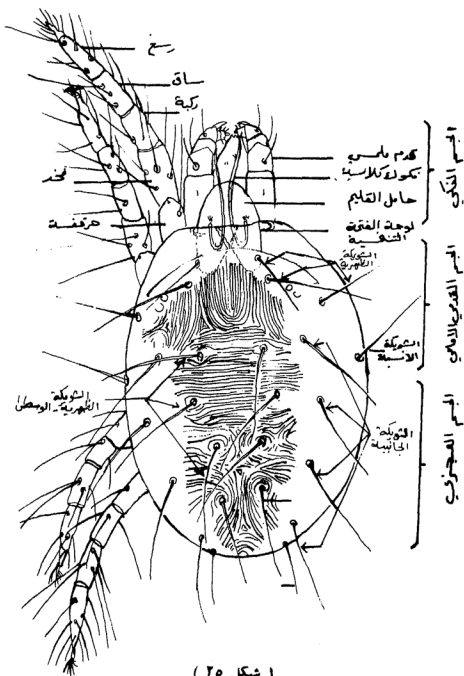 رسغ
ساق
ركبة
فخذ
حرقفة
قدم ملمسي
حامل القليم
لوحة الفتحة
التنفسية
الشويكة
الظهرية
الشويكة
الشويكة
الظهرية - الوسطى
الشويكة
الجانبية
الجسم الفكي
الجسم القدمي الأمامي
الجسم العجزي
( شكل ٢٥ )